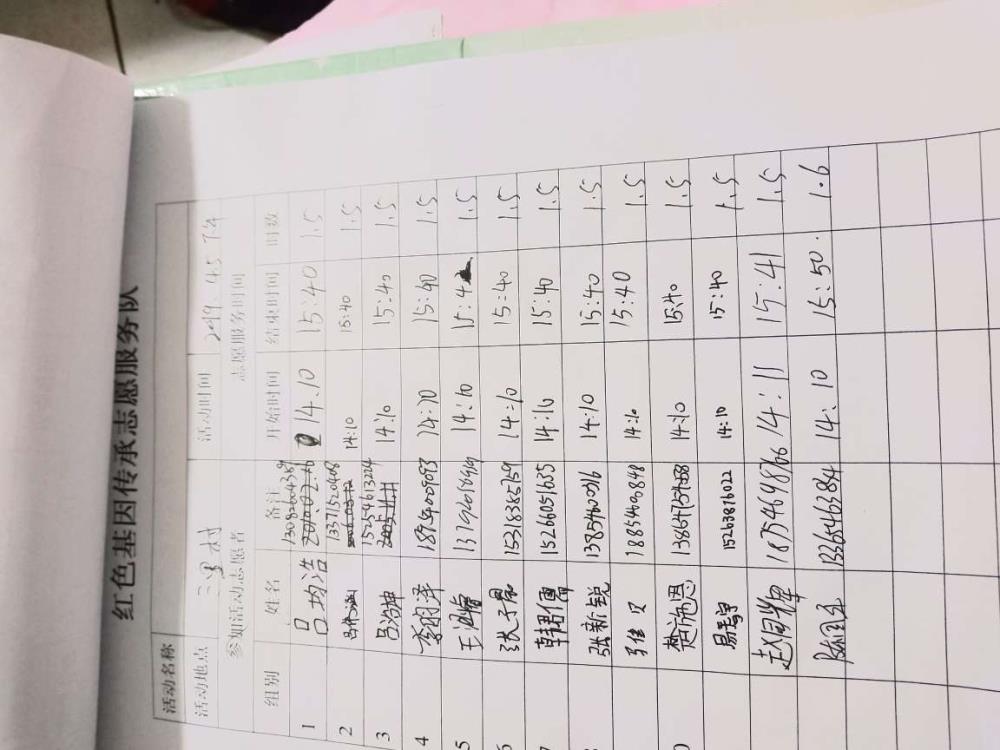 红色基因传承志愿服务队
活动名称
活动地点 三里村 活动时间 2019.4.5 下午
参加活动志愿者 志愿服务时间
组别 姓名 备注 开始时间 结束时间 时数
1 吕均浩 14:10 15:40 1.5
2 13371520408 14:10 15:40 1.5
3 吕浩坤 15254613224 14:10 15:40 1.5
4 李明泽 18954009093 14:10 15:40 1.5
5 14:10 1.5
张子 15318385759 14:10 15:40 1.5
韩 15266051635 14:10 15:40 1.5
张新锐 13854600916 14:10 15:40 1.5
18854600848 14:10 15:40 1.5
楚沛恩 14:10 15:40 1.5
15263876022 14:10 15:40 1.5
赵 18754698766 14:11 15:41 1.5
13365463884 14:10 15:50. 1.6